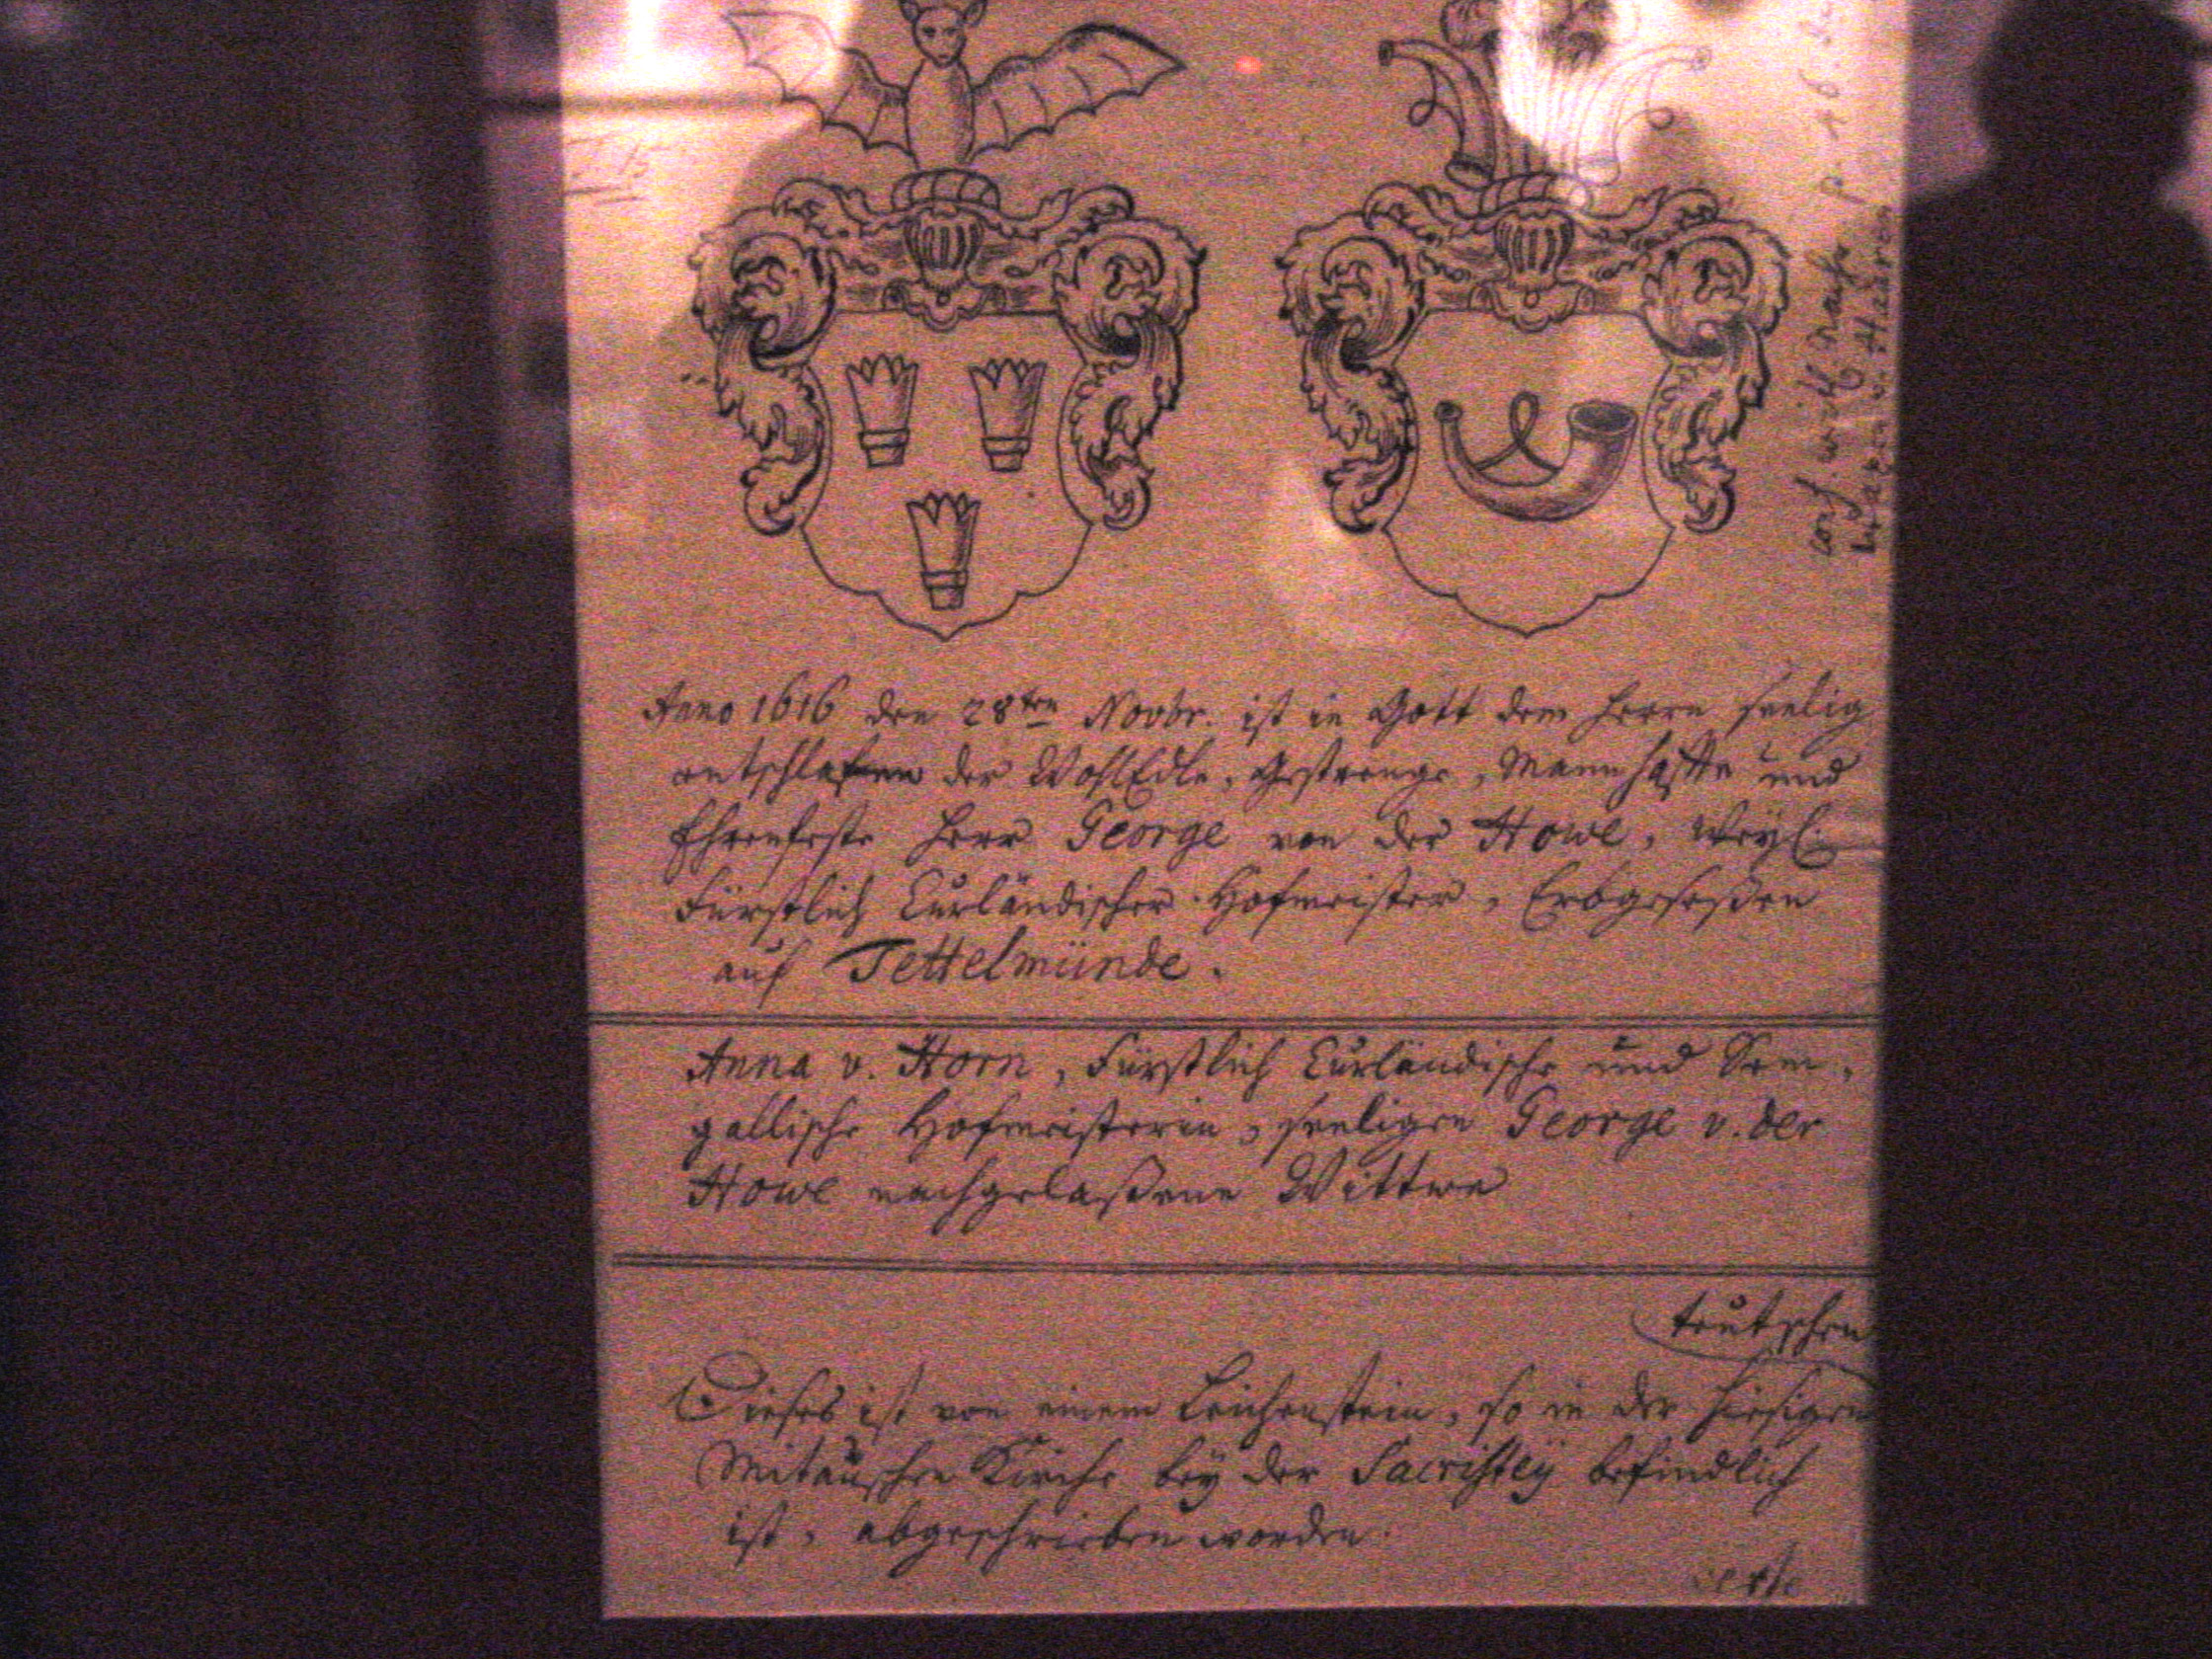 Anno 1616 den 28ten Novbr. ist in Gott dem Herrn seelig
entschlafen der WohlEdle, Gestrenge, Mannhaffte und
Ehrenfeste Herr George von der Howe, weyl.
Fürstlich Curländischer Hofmeister, Erbgeseßen
auf Tettelmünde.
Anna v. Horn, Fürstlich Curländische und Sem,
gallische Hofmeisterin, seeligen George v. der
Howe nachgelaßene Wittwe
teutschen
Dieses ist von einem Leichenstein, so in der hiesigen
Mitauschen Kirche bey der Sacristey befindlich
ist, abgeschrieben worden.
conf.
Wapen v.